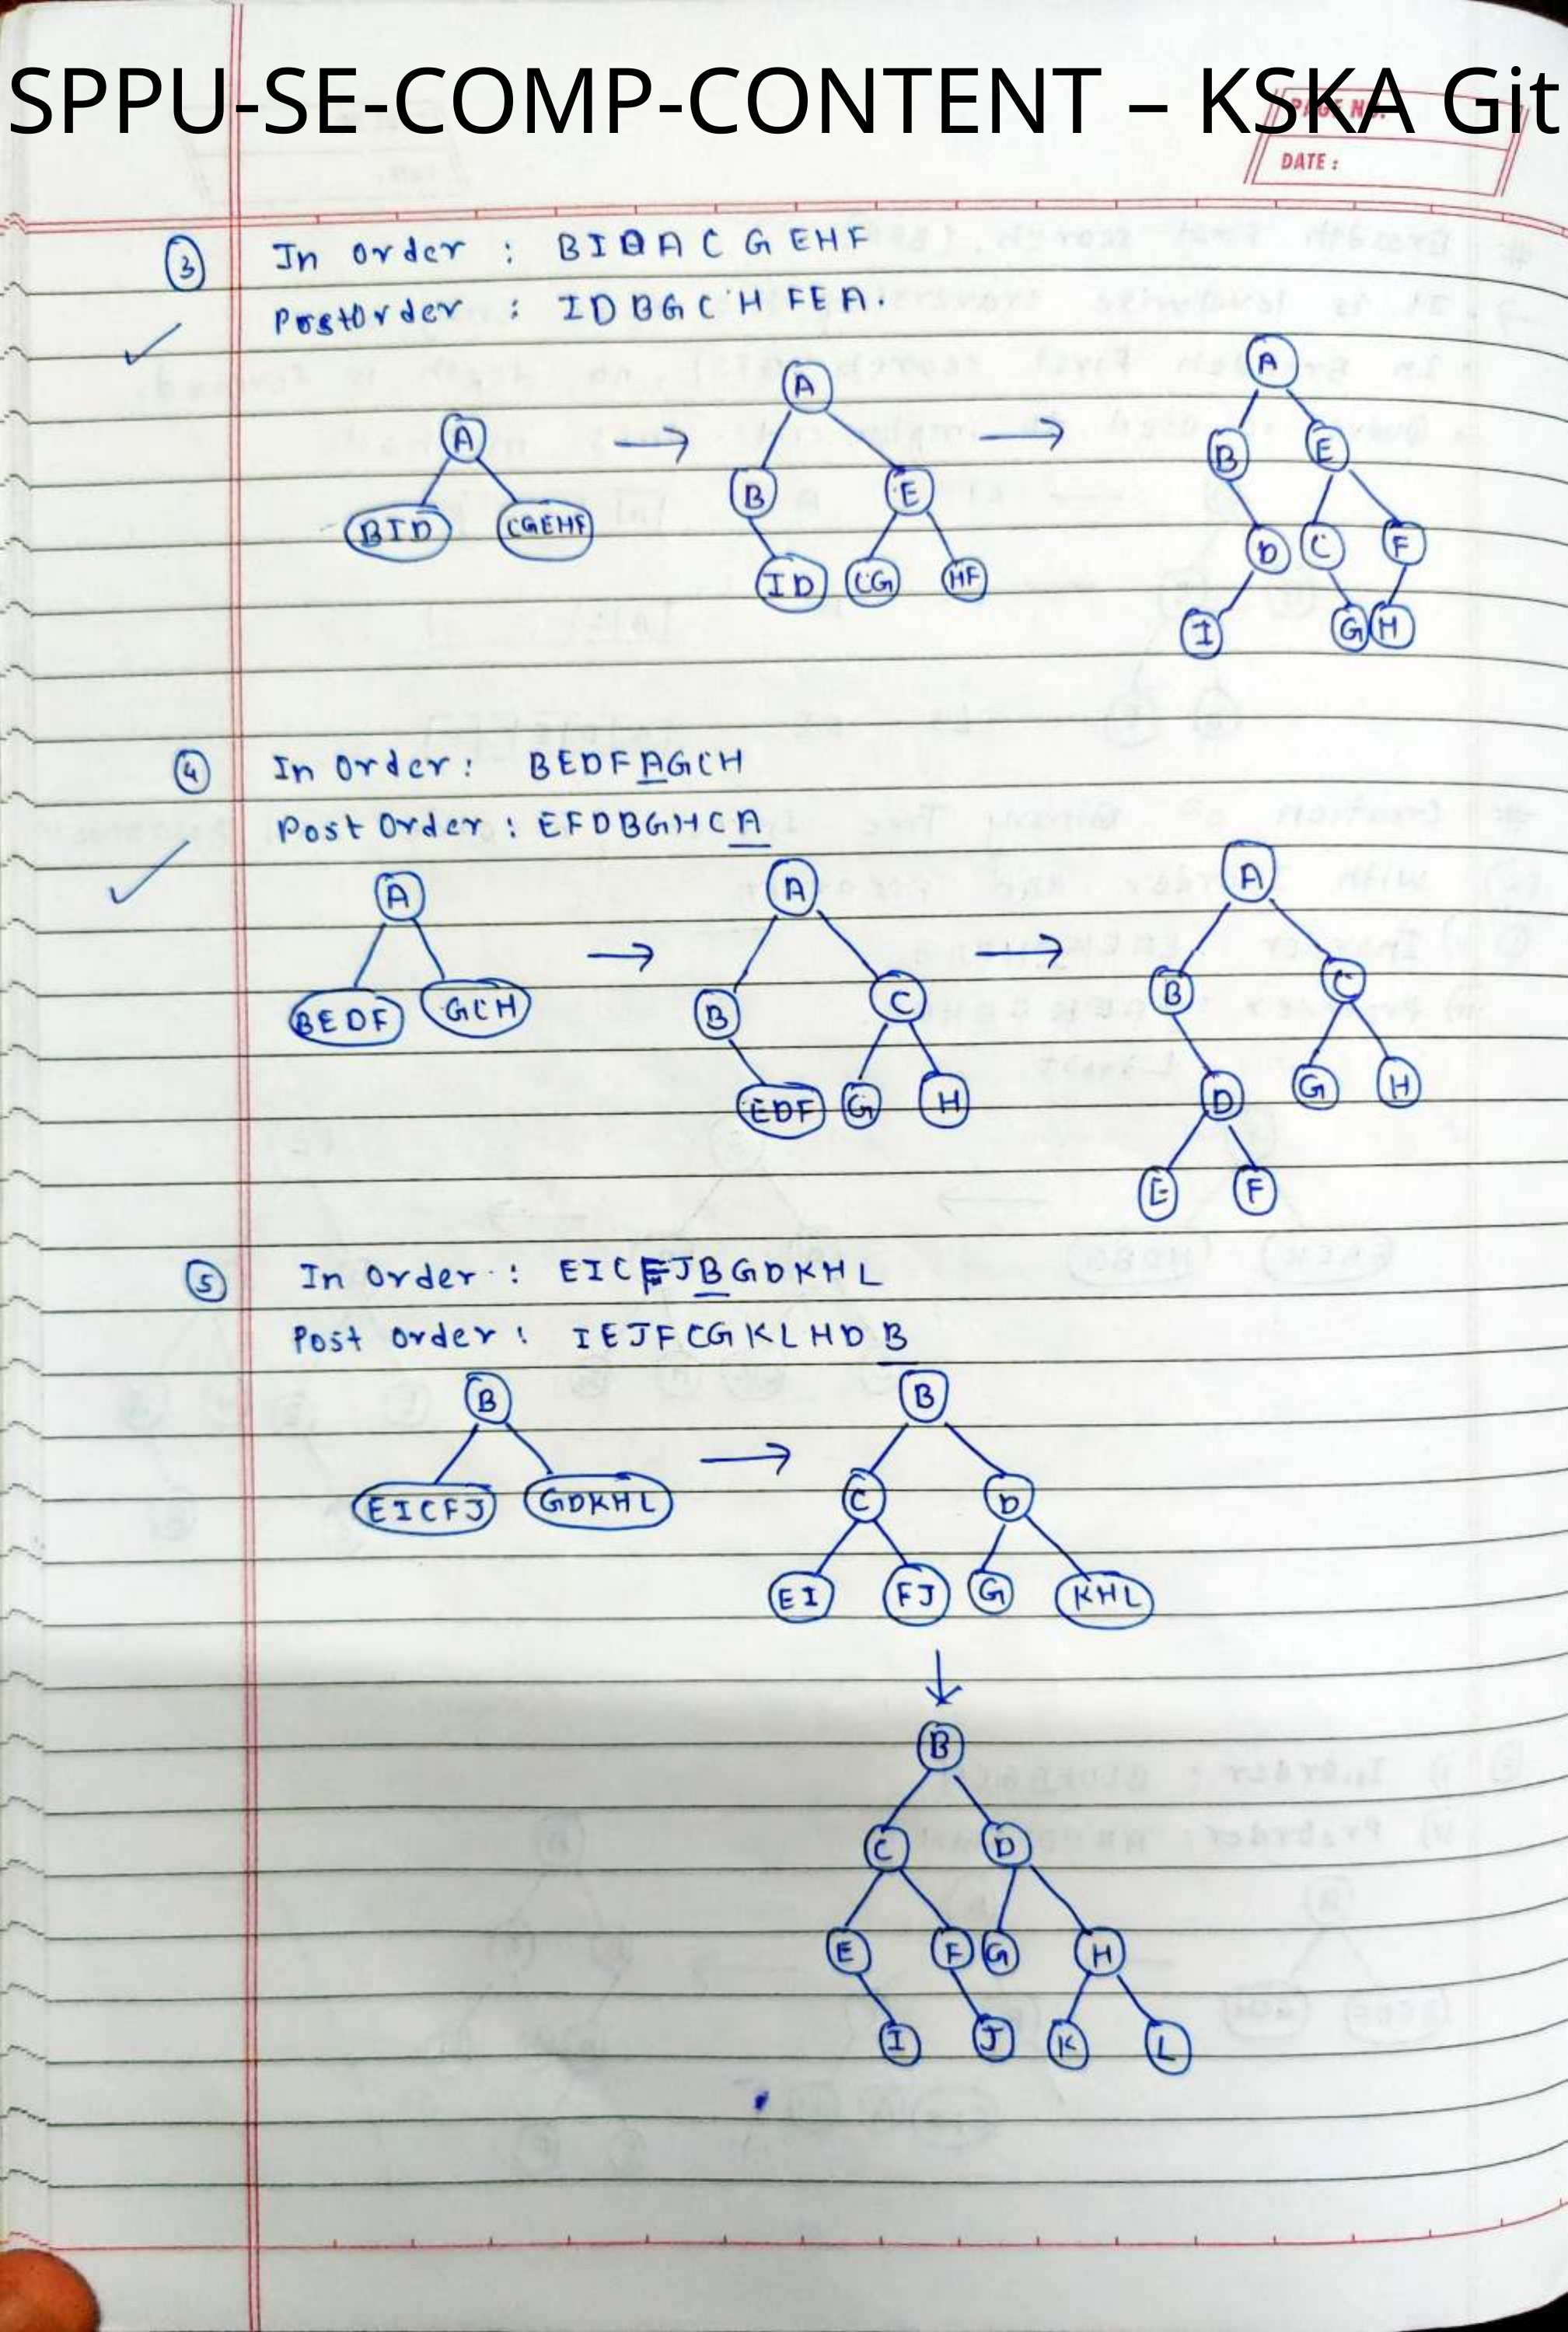 SPPU-SE-COMP-CONTENT – KSKA Git
PAGE NO.
DATE :
3 In Order : BIDACGEHF
PostOrder : IDBGCHFEA.
A
A
A
B E
BID CGEHF
B E
D C F
ID CG HF
I G H
4 In Order : BEDFAGCH
Post Order : EFDBGHCA
A
A
A
BEDF GCH
B C
B C
EDF G H
D G H
E F
5 In Order : EICFJBGDKHL
Post Order : IEJFCGKLHDB
B
B
EICFJ GDKHL
C D
EI FJ G KHL
B
C D
E F G H
I J K L